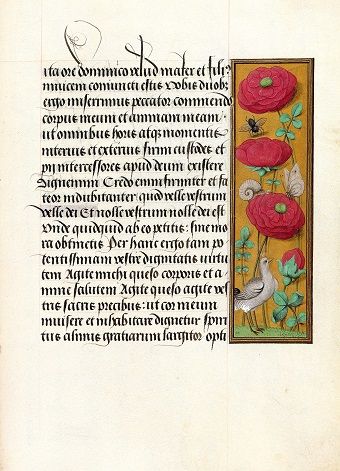 ita ore dominico velud mater et fili⸗
invicem coniuncti estis Vobis duob
ergo miserrimus peccator commendo
corpus meum et animam meam⸝
ut omnibus horis atqꝫ momentis
interius et exterius firmi custodes et
pij intercessores apud deum existere
Dignemini Credo enim firmiter et fa
teor indubitanter quod velle vestrum
velle dei Et nolle vestrum nolle dei est
Unde quidquid ab eo petitis⸝ sine mo
ra obtinetis Per hanc ergo tam po
tentissimam vestre dignitatis virtu
tem Agite michi queso corporis et a⸗
nime salutem Agite queso agite ves
tris sacris precibus⸝ ut cor meum
invisere et inhabitare dignetur spiri
tus almus gratiarum largitor opti